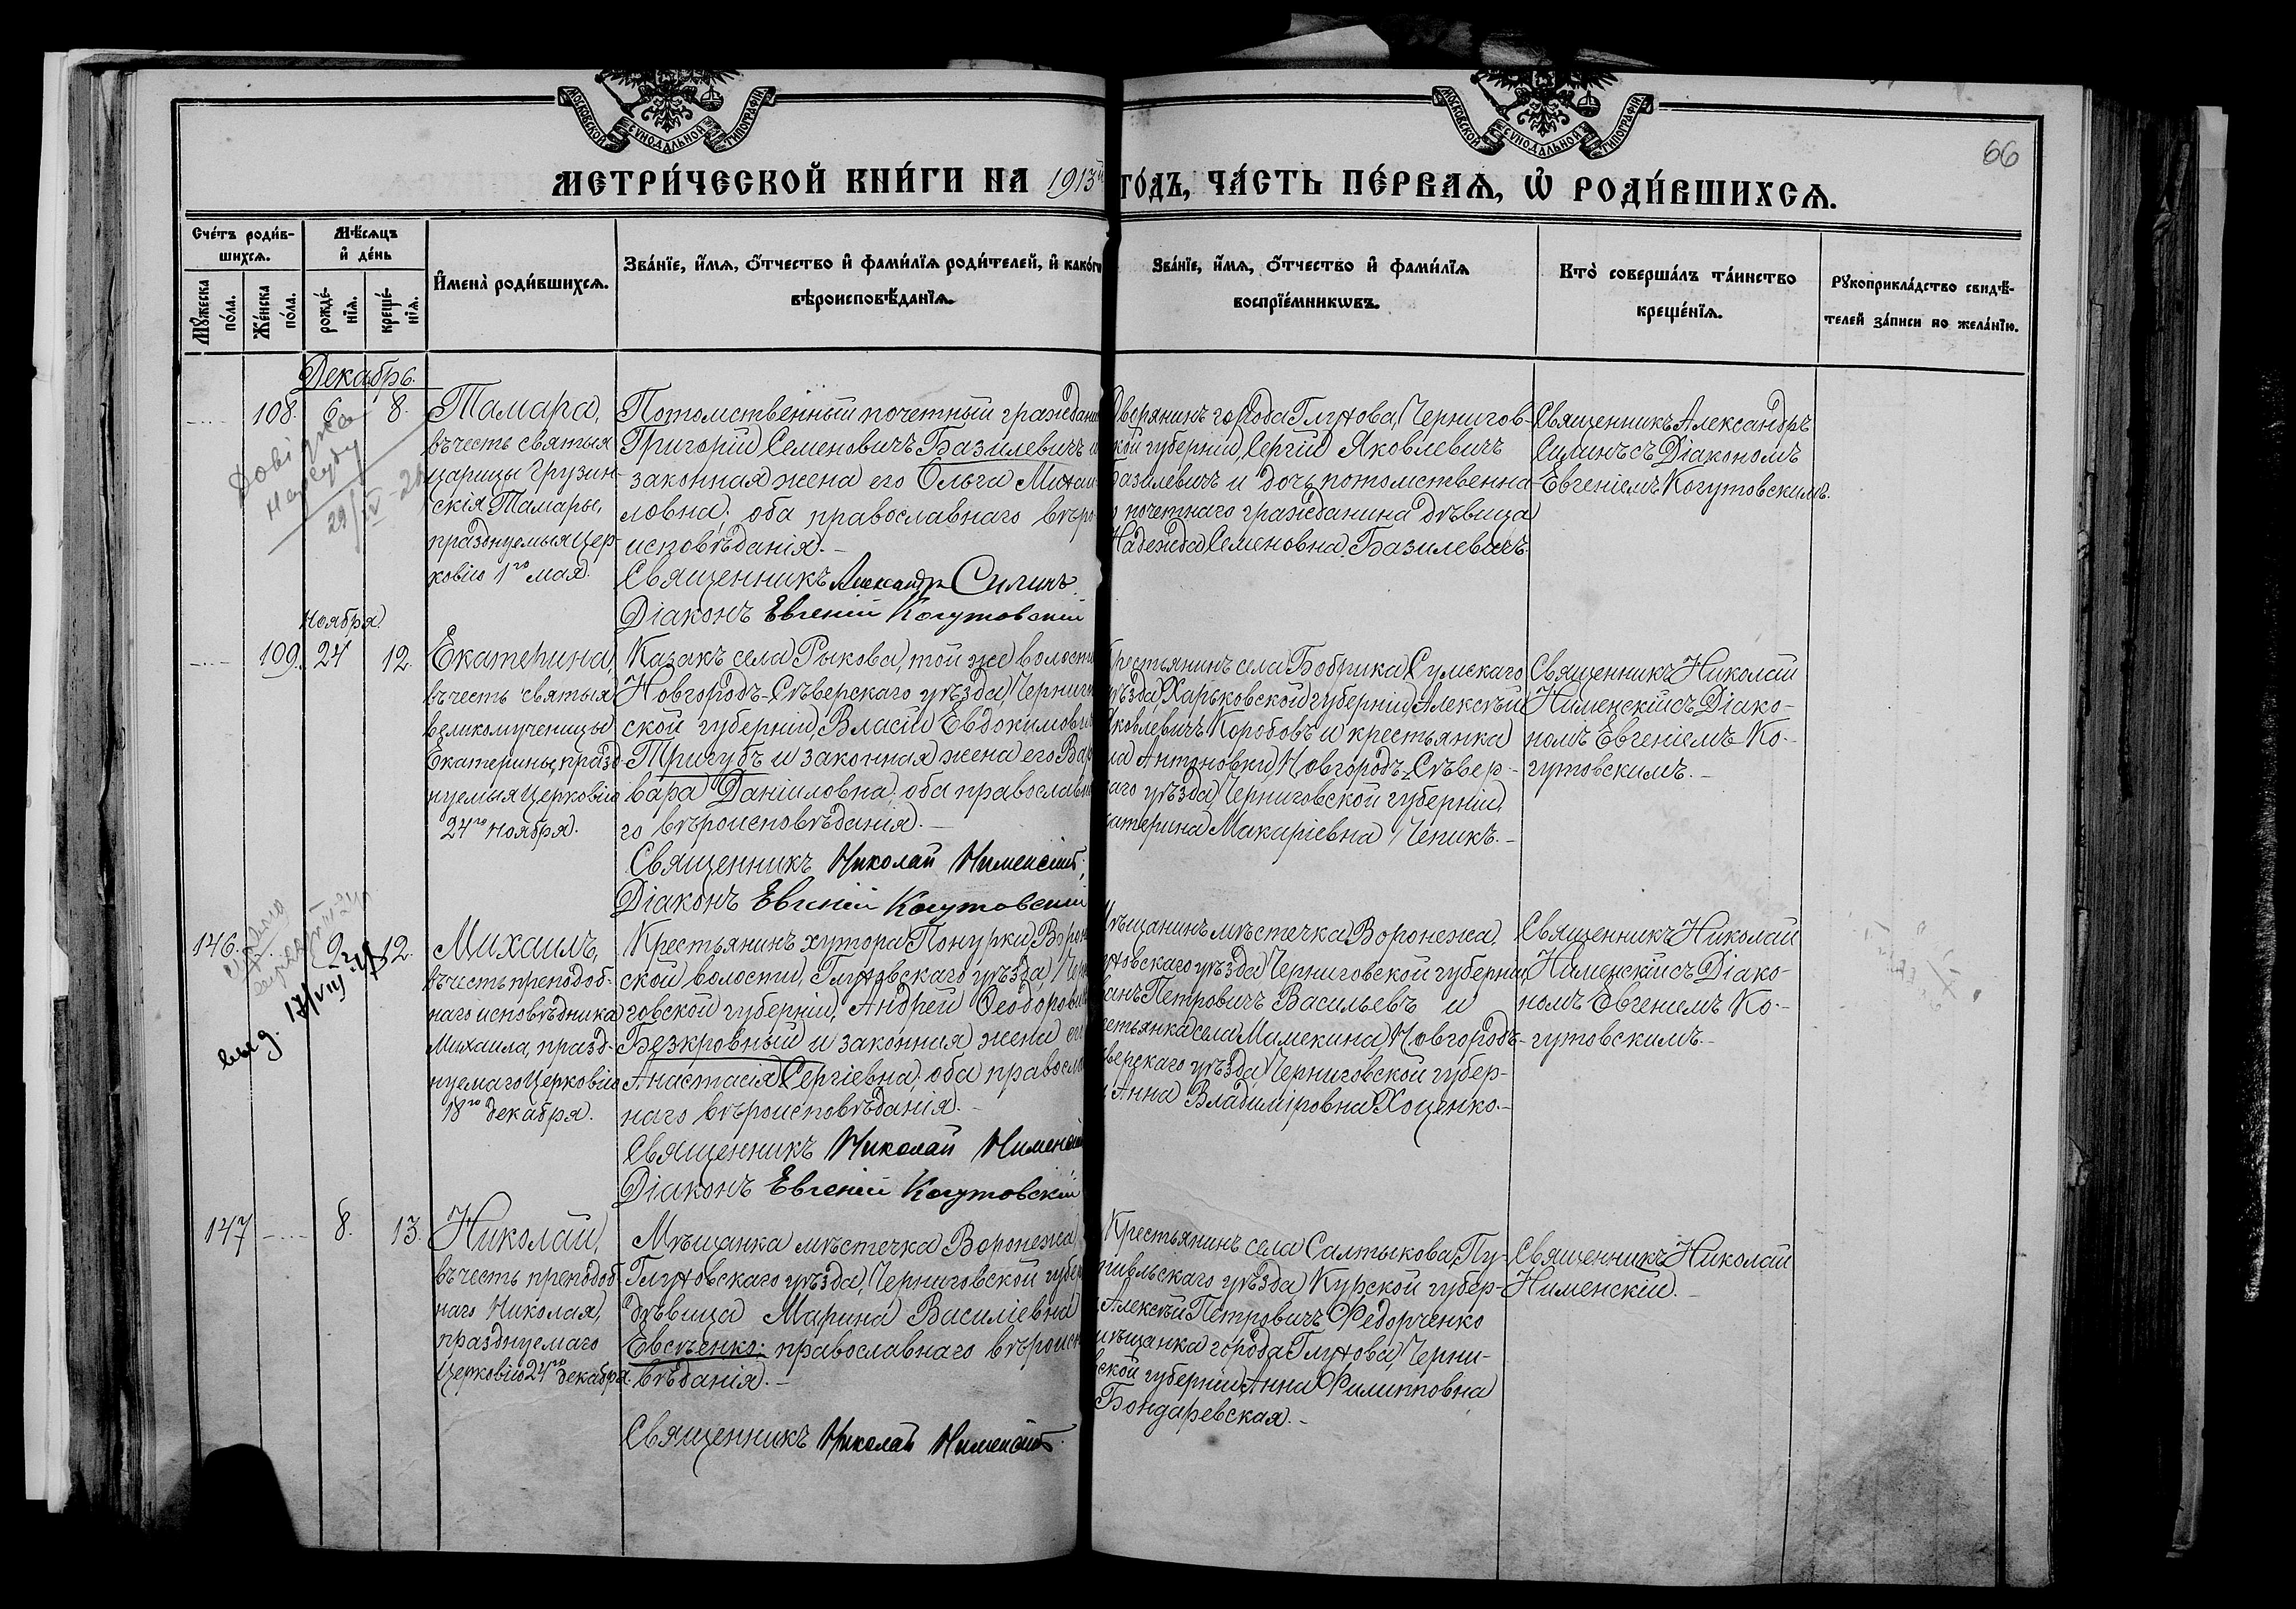 МОСКОВСКОЙ СУНОДАЛЬНОЙ ТИПОГРАФІИ
МОСКОВСКОЙ СУНОДАЛЬНОЙ ТИПОГРАФІИ
66
МЕТРИ́ЧЕСКОЙ КНИ́ГИ НА 1913й
ГО́ДЪ, ЧА́СТЬ ПЕ́РВАѦ, Ѡ РОДИ́ВШИХСѦ.
Счéтъ роди́в-
шихсѧ.
Мꙋ́жеска по́ла.
Же́нска по́ла.
Мѣ́сѧцъ
и҆ де́нь
рожде́-
нїѧ.
креще́-
нїѧ.
И҆мена̀ роди́вшихсѧ.
Зва́нїе, и҆́мѧ, ѻ҆́тчество и҆ фами́лїѧ роди́телей, и҆ како́гѡ
вѣроисповѣ́данїѧ.
Зва́нїе, и҆́мѧ, ѻ҆́тчество и҆ фами́лїѧ
воспрїе́мникѡвъ.
Кто̀ соверша́лъ та́инство
креще́нїѧ.
Рꙋкоприкла́дство свидѣ́-
телей за́писи по жела́нїю.
Декабрь.
108. 6 8.
Тамара,
въ честь святыя
царицы Грузин-
скія Тамары,
празднуемыя Цер-
ковію 1го мая.
Потомственный почетный граждани
Григорій Семеновичъ Базилевичъ и
законная жена его Ольга Михаи-
ловна; оба православнаго вѣро-
исповѣданія.-
Священникъ Александръ Силинъ
Діаконъ Евгеній Когутовскій
Дворянинъ города Глухова, Чернигов-
кой губерніи, Сергій Яковлевичъ
Базилевичъ и дочь потомственна-
о почетнаго гражданина дѣвица
Надежда Семеновна Базилевичъ.
Священникъ Александръ
Силинъ съ Діакономъ
Евгеніемъ Когутовскимъ.
Довідка
Нарсуду
29/IV-
Ноября.
109. 24 12.
Екатерина,
въ честь святыя
великомученицы
Екатерины, празд-
нуемыя Церковію
24го ноября.
Казакъ села Рыкова, той же волости
Новгородъ-Сѣверскаго уѣзда, Черниго
ской губерніи, Власій Евдокимович
Тригубъ и законная жена его Вар
вара Даніиловна; оба православна
го вѣроисповѣданія.-
Священникъ Николай Нименскій
Діаконъ Евгеній Когутовскій
рестьянинъ села Бобрика, Сумскаго
уѣзда, Харьковской губерніи, Алексѣй
Яковлевичъ Коробовъ и крестьянка
ла Антоновки, Новгородъ-Сѣвер-
каго уѣзда, Черниговской губерніи,
катерина Макаріевна Чепикъ.-
Священникъ Николай
Нименскій съ Діако-
номъ Евгеніемъ Ко-
гутовскимъ.-
146. 9. 12.
выд. 17/VIII
Михаилъ,
въ честь преподоб-
наго исповѣдника
Михаила, празд-
нуемаго Церковію
18го декабря.
Крестьянинъ хутора Понурки, Ворон
ской волости, Глуховскаго уѣзда, Черн
говской губерніи, Андрей Ѳеодорович
Безкровный и законная жена ег
Анастасія Сергіевна; оба правосла
наго вѣроисповѣданія.-
Священникъ Николай Нименскій
Діаконъ Евгеній Когутовскій
Мѣщанинъ мѣстечка Воронежа,
уховскаго уѣзда, Черниговской губерніи,
ванъ Петровичъ Васильевъ и
рестьянка села Мамекина, Новгородъ-
верскаго уѣзда, Черниговской губер-
и Анна Владиміровна Хоценко.-
Священникъ Николай
Нименскій съ Діако-
номъ Евгеніемъ Ко-
гутовскимъ.-
147 8. 13.
Николай,
въ честь преподоб-
наго Николая,
празднуемаго
Церковію 24го декабря.
Мѣщанка мѣстечка Воронежа,
Глуховскаго уѣзда, Черниговской губер
дѣвица Марина Василіевна
Евсѣенко; православнаго вѣроисп
вѣданія.-
Священникъ Николай Нименскій
Крестьянинъ села Салтыкова, Пу-
тивльскаго уѣзда, Курской губер-
Алексѣй Петровичъ Федорченко
мѣщанка города Глухова, Черни-
вской губерніи Анна Филипповна
Бондаревская.-
Священникъ Николай
Нименскій.-